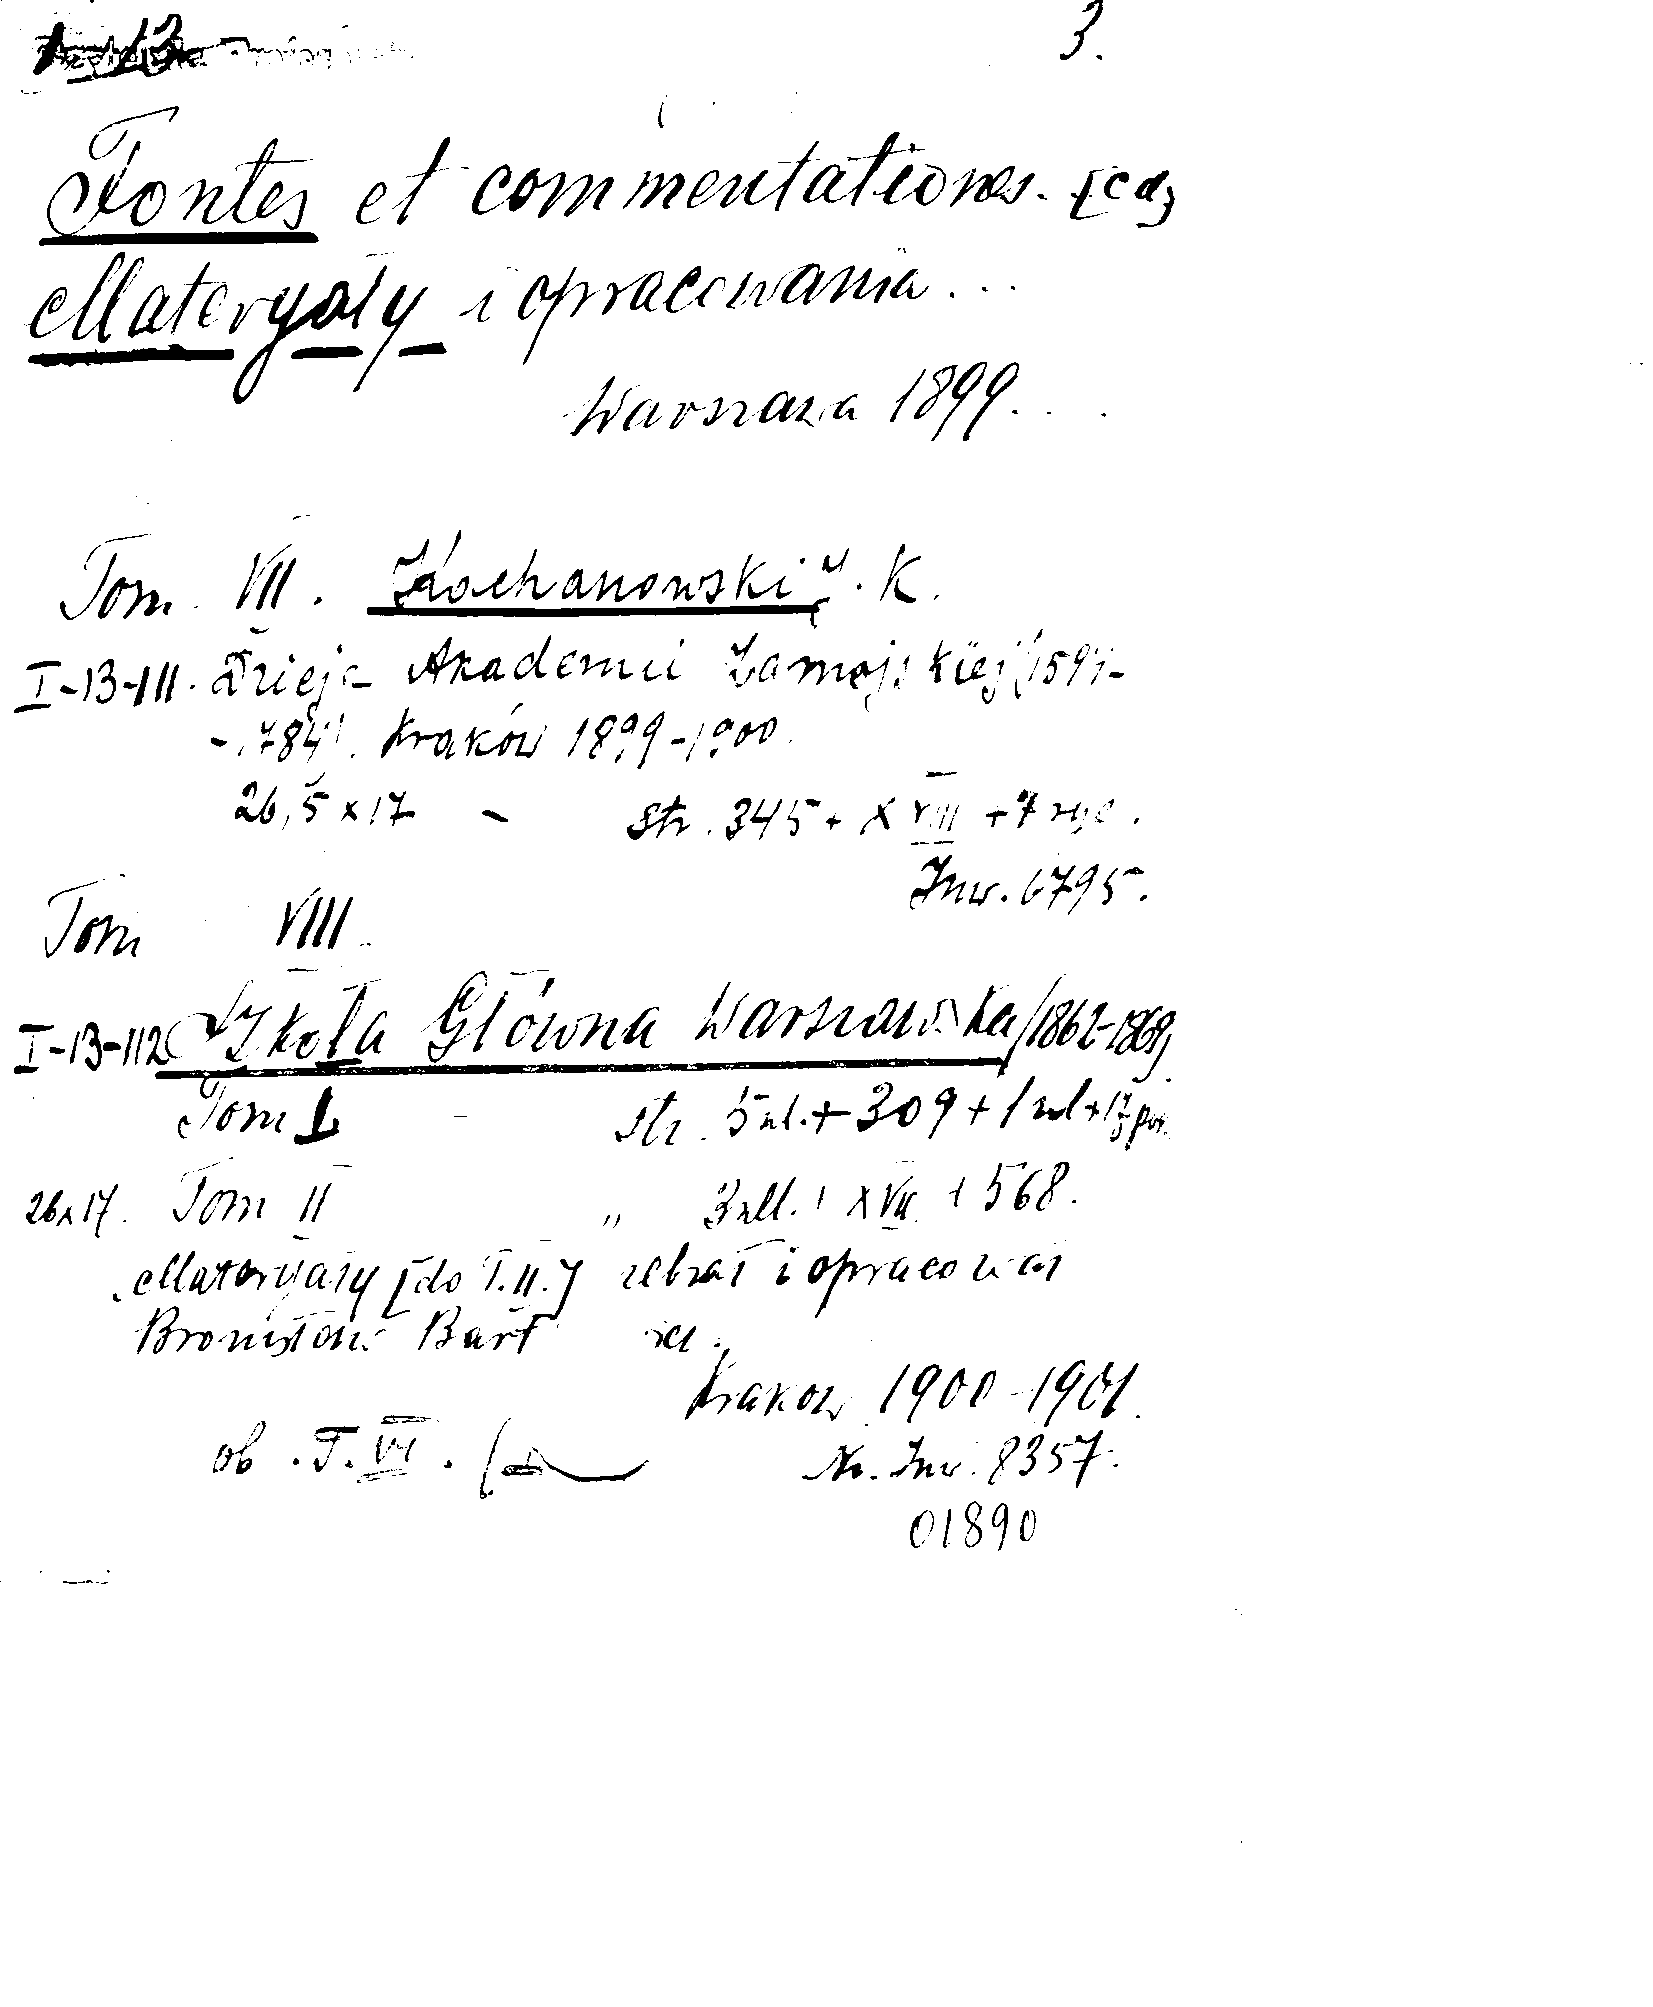 I-13
3.
Fontes et commentationes. [cd]
Materyały i opracowania...
Warszawa 1899...
Tom VII. Kochanowski J. K.
I-13-111. Dzieje Akademii Zamojskiej (1594-
-1784). Kraków 1899-1900.
26,5 x 17 - str. 345 + XVIII + 7 ryc.
Inw. 6795.
Tom VIII.
I-13-112 Szkoła Główna Warszawska (1862-1869)
Tom I - str. 5 nl. + 309 + 1 nl + 17
26x17. Tom II „ 3 nll. + XVII + 568.
Materyały [do T. II.] zebrał i opracował
Bronisław
Kraków 1900-1901.
ob. T. VI.
Nr. Inw. 8357.
01890